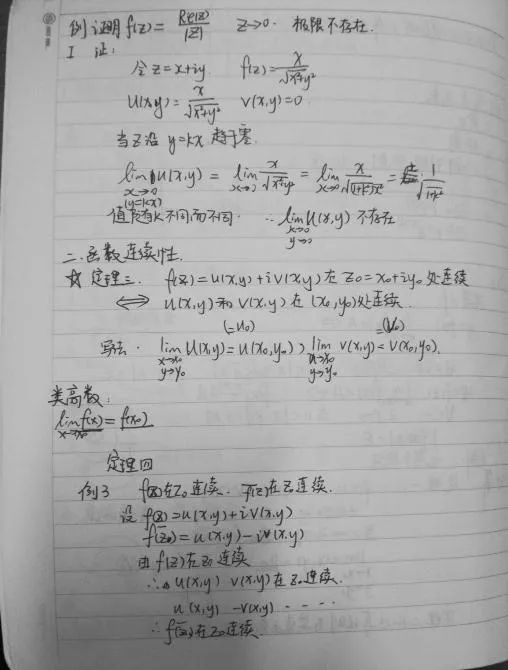 例 证明 f(z) = Re(z)/|z| z→0. 极限不存在.
I 证:
令 z = x+iy f(z) = x/√x²+y²
u(x,y) = x/√x²+y² v(x,y) = 0
当 z 沿 y=kx 趋于零.
lim u(x,y) = lim x/√x²+y² = lim x/√(1+k²)x² = ± 1/√1+k²
x→0 x→0 x→0
(y=kx)
值随k不同而不同. ∴ lim u(x,y) 不存在
x→0
y→0
二. 函数连续性.
☆ 定理三. f(z) = u(x,y)+iv(x,y) 在 z0 = x0+iy0 处连续
⟺ u(x,y) 和 v(x,y) 在 (x0,y0) 处连续.
(=u0) (=v0)
写法. lim u(x,y) = u(x0,y0), lim v(x,y) = v(x0,y0).
x→x0 x→x0
y→y0 y→y0
类高数:
lim f(x) = f(x0)
x→x0
定理四
例3 f(z)在z0连续. f(z)在z0连续.
设 f(z) = u(x,y)+iv(x,y)
f(z0) = u(x,y) - iv(x,y)
由 f(z) 在 z0 连续
∴ u(x,y) v(x,y) 在 z0 连续.
u(x,y) -v(x,y) - - - -
∴ f(z) 在 z0 连续.